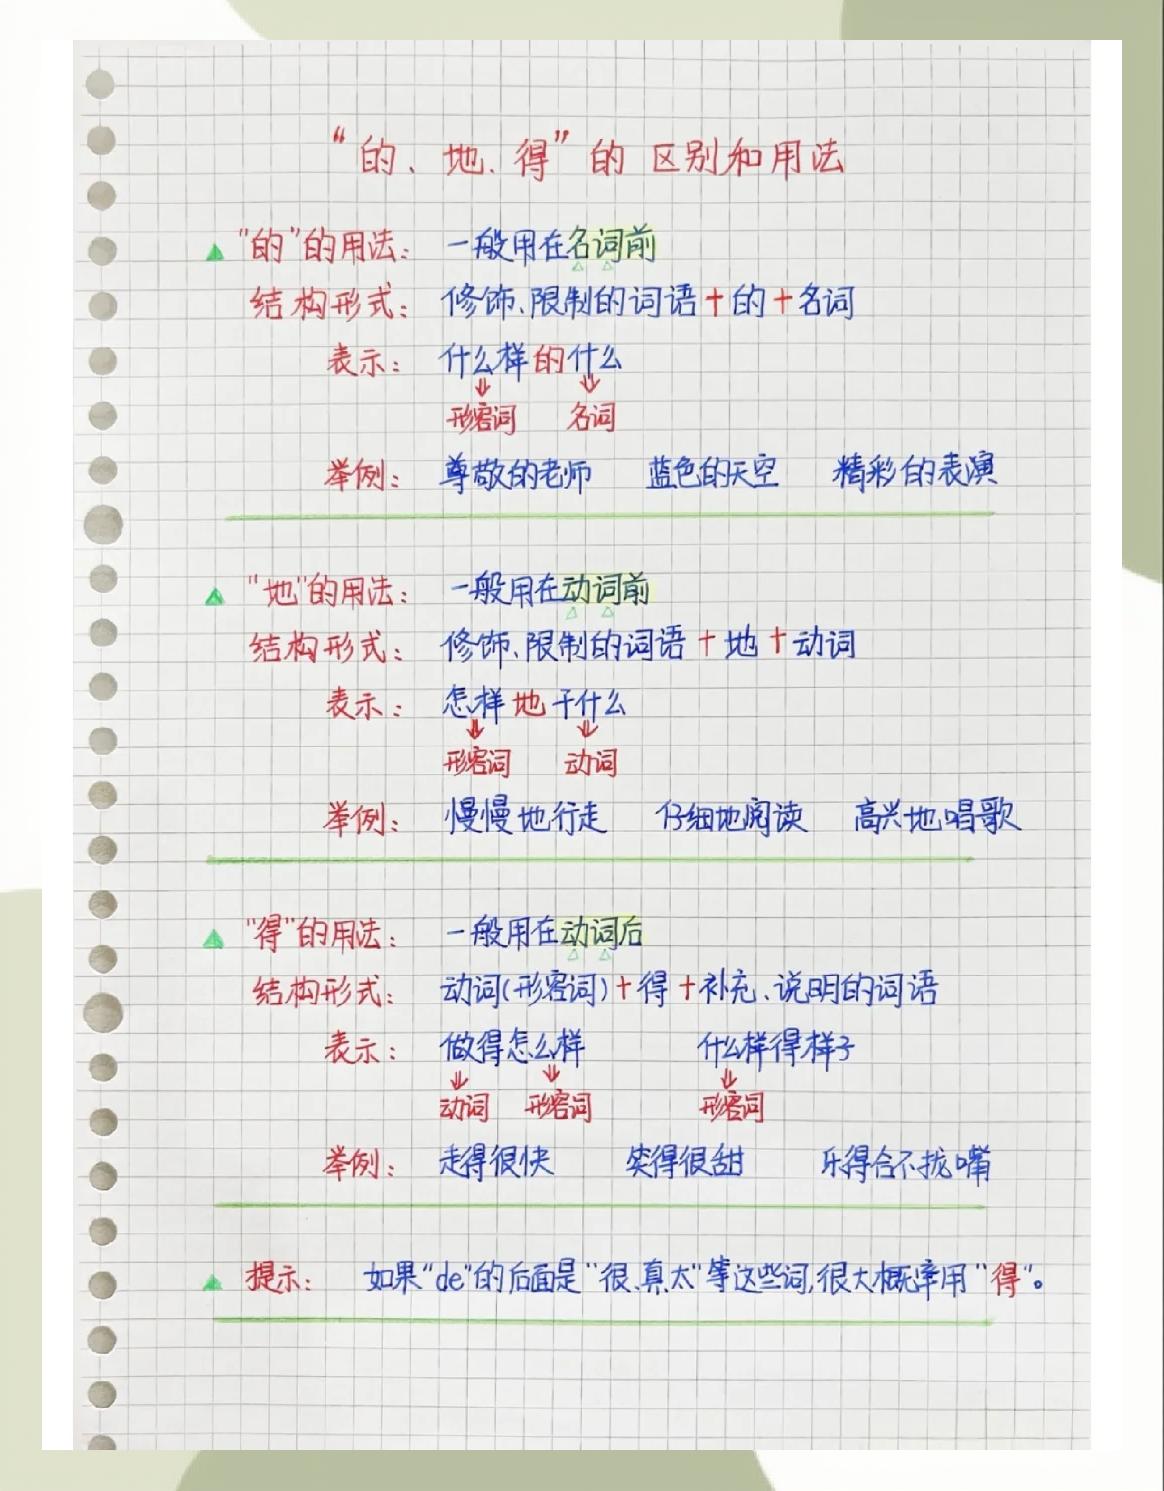 “的、地、得”的区别和用法
“的”的用法： 一般用在名词前
结构形式： 修饰、限制的词语+的+名词
表示： 什么样的什么
形容词 名词
举例： 尊敬的老师 蓝色的天空 精彩的表演
“地”的用法： 一般用在动词前
结构形式： 修饰、限制的词语+地+动词
表示： 怎样地干什么
形容词 动词
举例： 慢慢地行走 仔细地阅读 高兴地唱歌
“得”的用法： 一般用在动词后
结构形式： 动词(形容词)+得+补充、说明的词语
表示： 做得怎么样 什么样得样子
动词 形容词 形容词
举例： 走得很快 笑得很甜 乐得合不拢嘴
提示： 如果“de”的后面是“很、真、太”等这些词,很大概率用“得”。